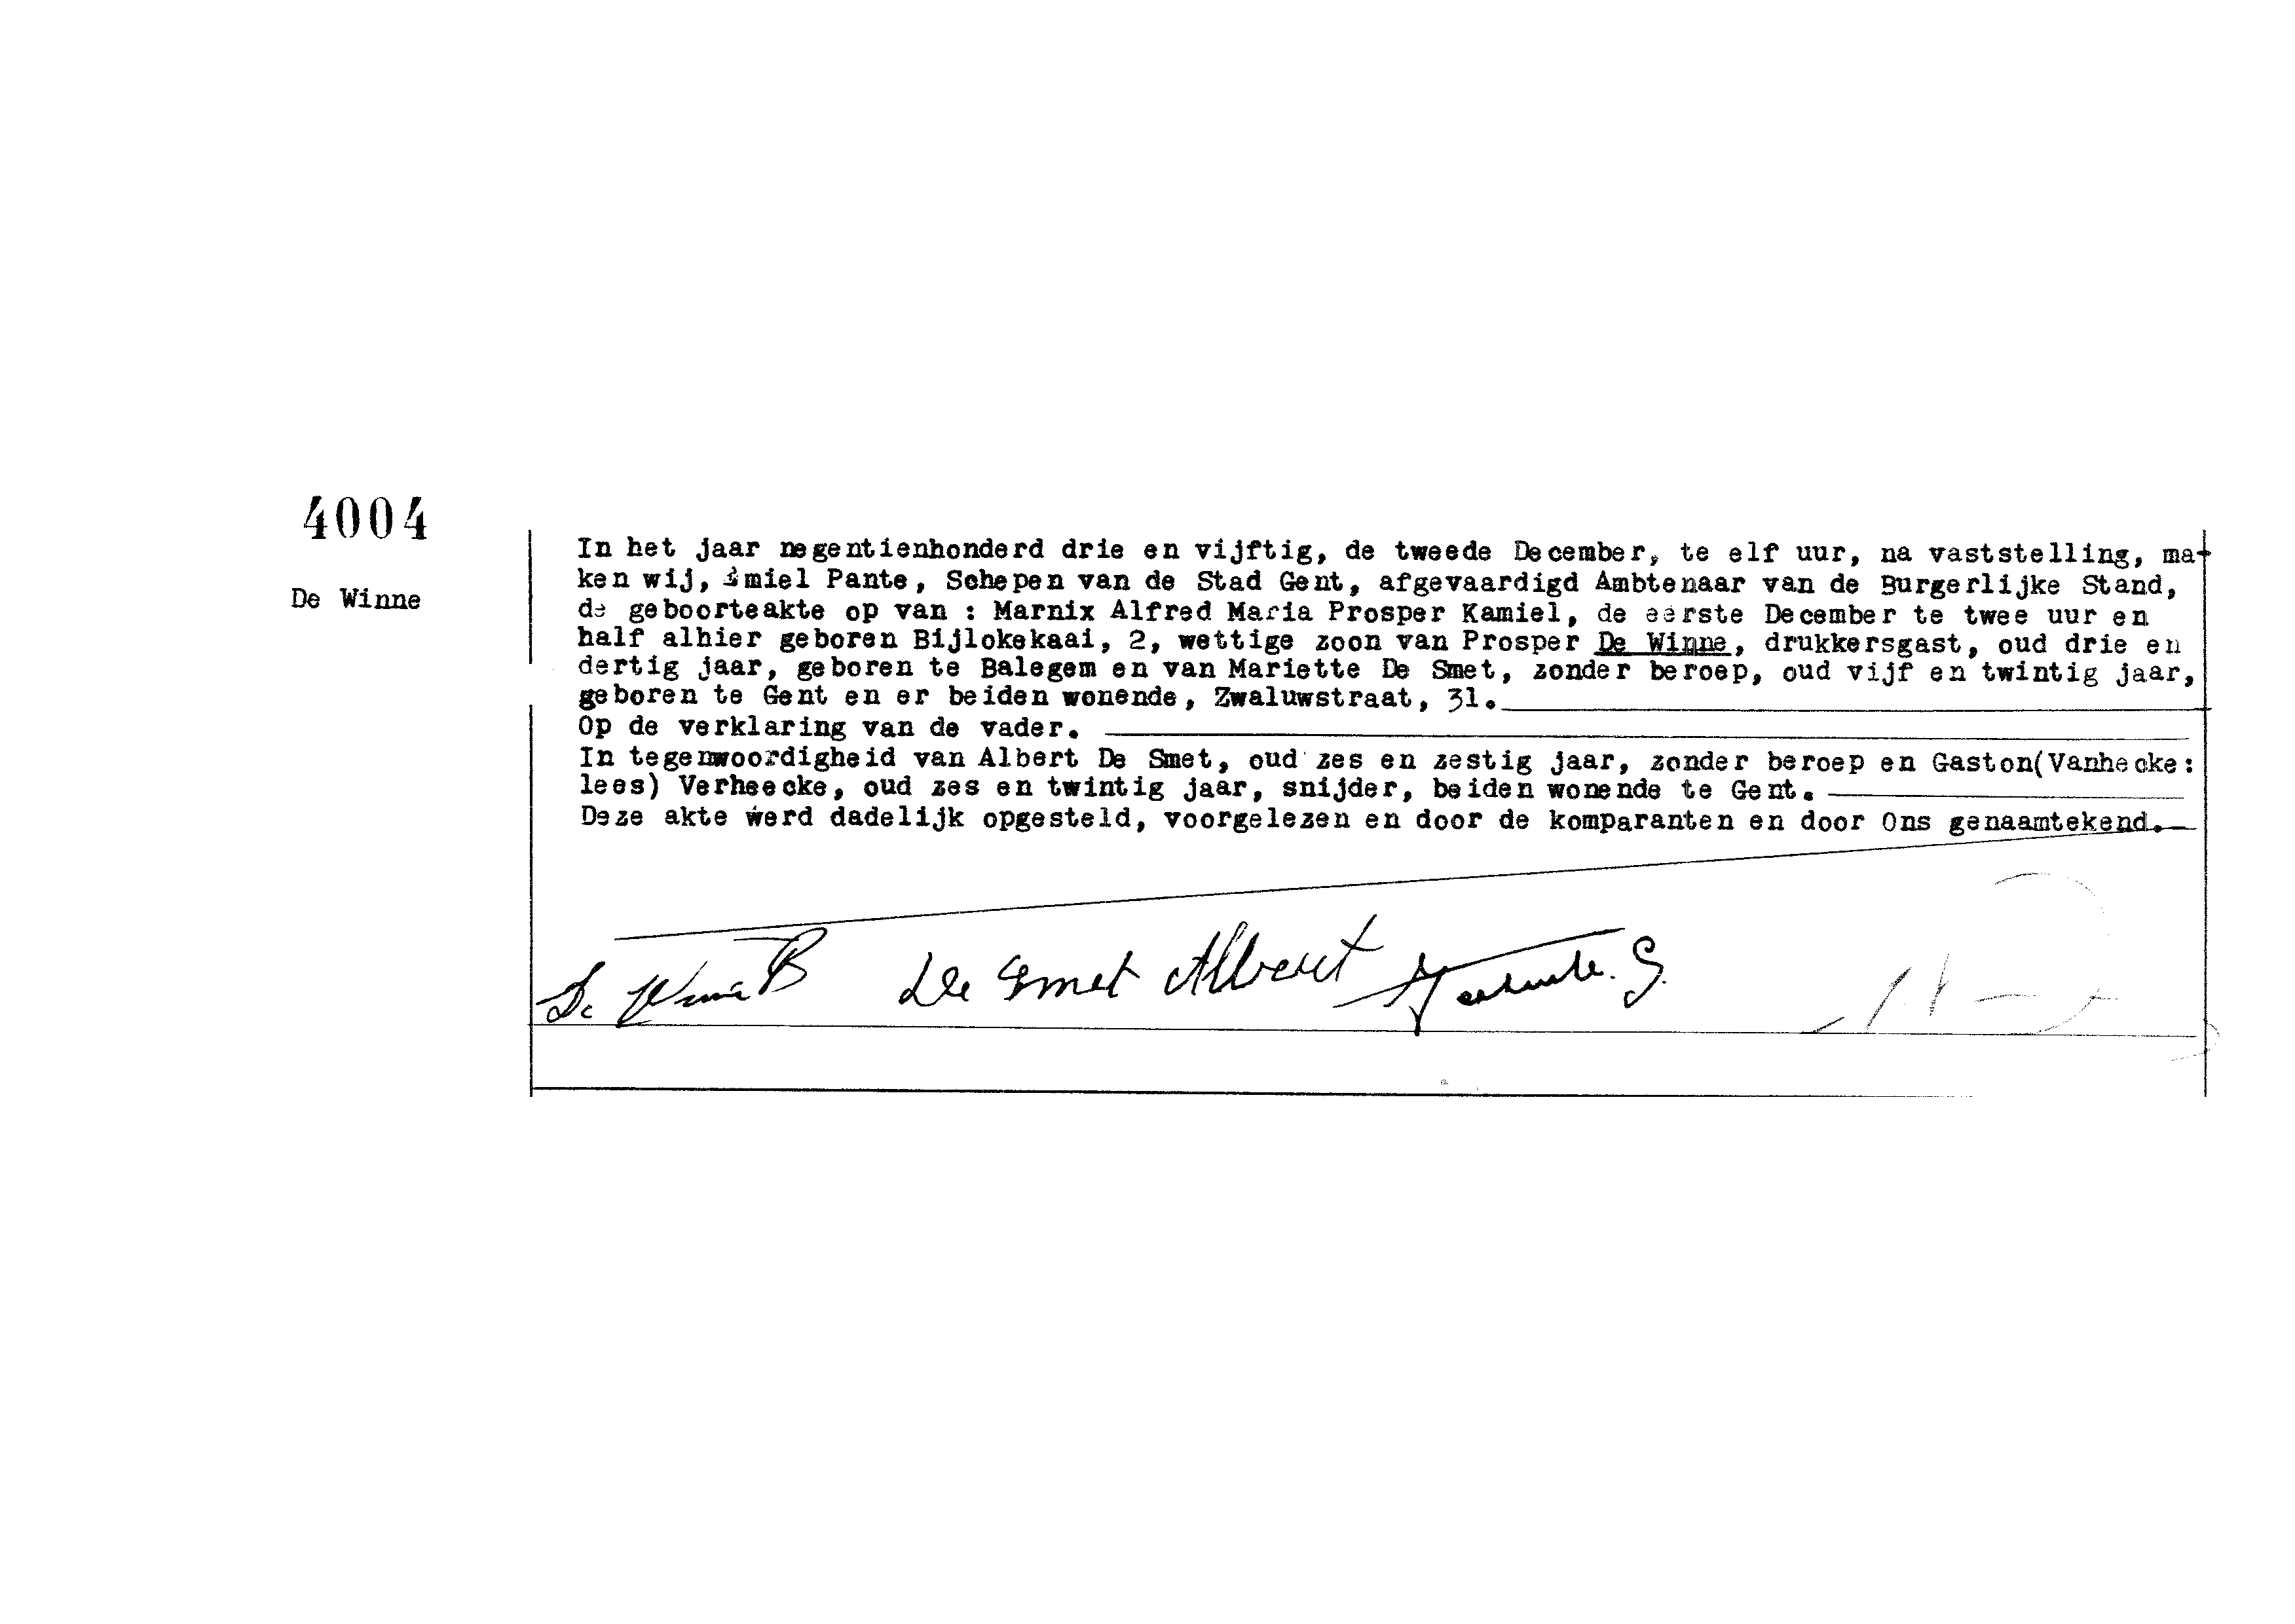 4004
De Winne
In het jaar negentienhonderd drie en vijftig, de tweede December, te elf uur, na vaststelling, ma-
ken wij, Emiel Pante, Schepen van de Stad Gent, afgevaardigd Ambtenaar van de Burgerlijke Stand,
de geboorteakte op van : Marnix Alfred Maria Prosper Kamiel, de eerste December te twee uur en
half alhier geboren Bijlokekaai, 2, wettige zoon van Prosper De Winne, drukkersgast, oud drie en
dertig jaar, geboren te Balegem en van Mariette De Smet, zonder beroep, oud vijf en twintig jaar,
geboren te Gent en er beiden wonende, Zwaluwstraat, 31.
Op de verklaring van de vader.
In tegenwoordigheid van Albert De Smet, oud zes en zestig jaar, zonder beroep en Gaston(Vanhecke:
lees) Verheecke, oud zes en twintig jaar, snijder, beiden wonende te Gent.
Deze akte werd dadelijk opgesteld, voorgelezen en door de komparanten en door Ons genaamtekend.
De Winne De Smet Albert G.